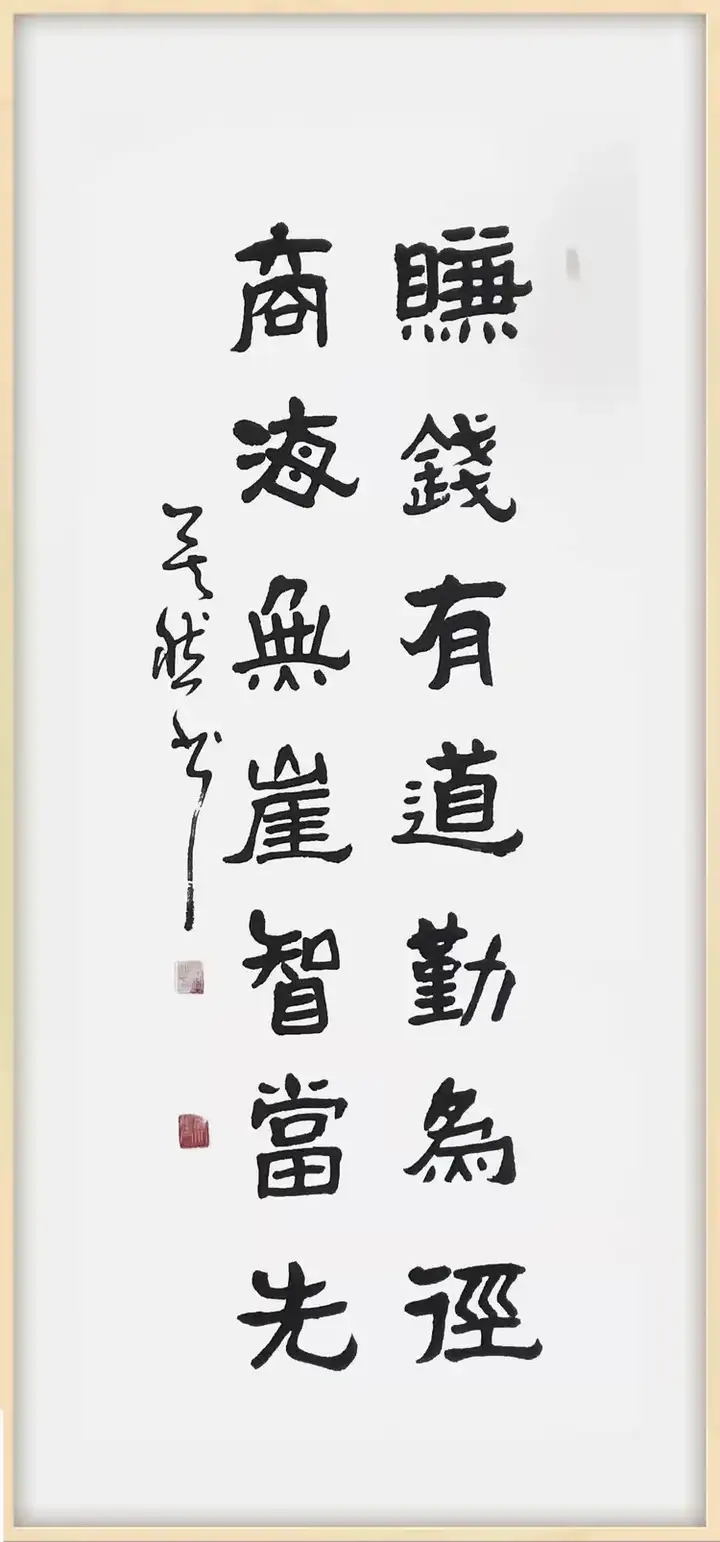 賺錢有道勤為徑
商海無崖智當先